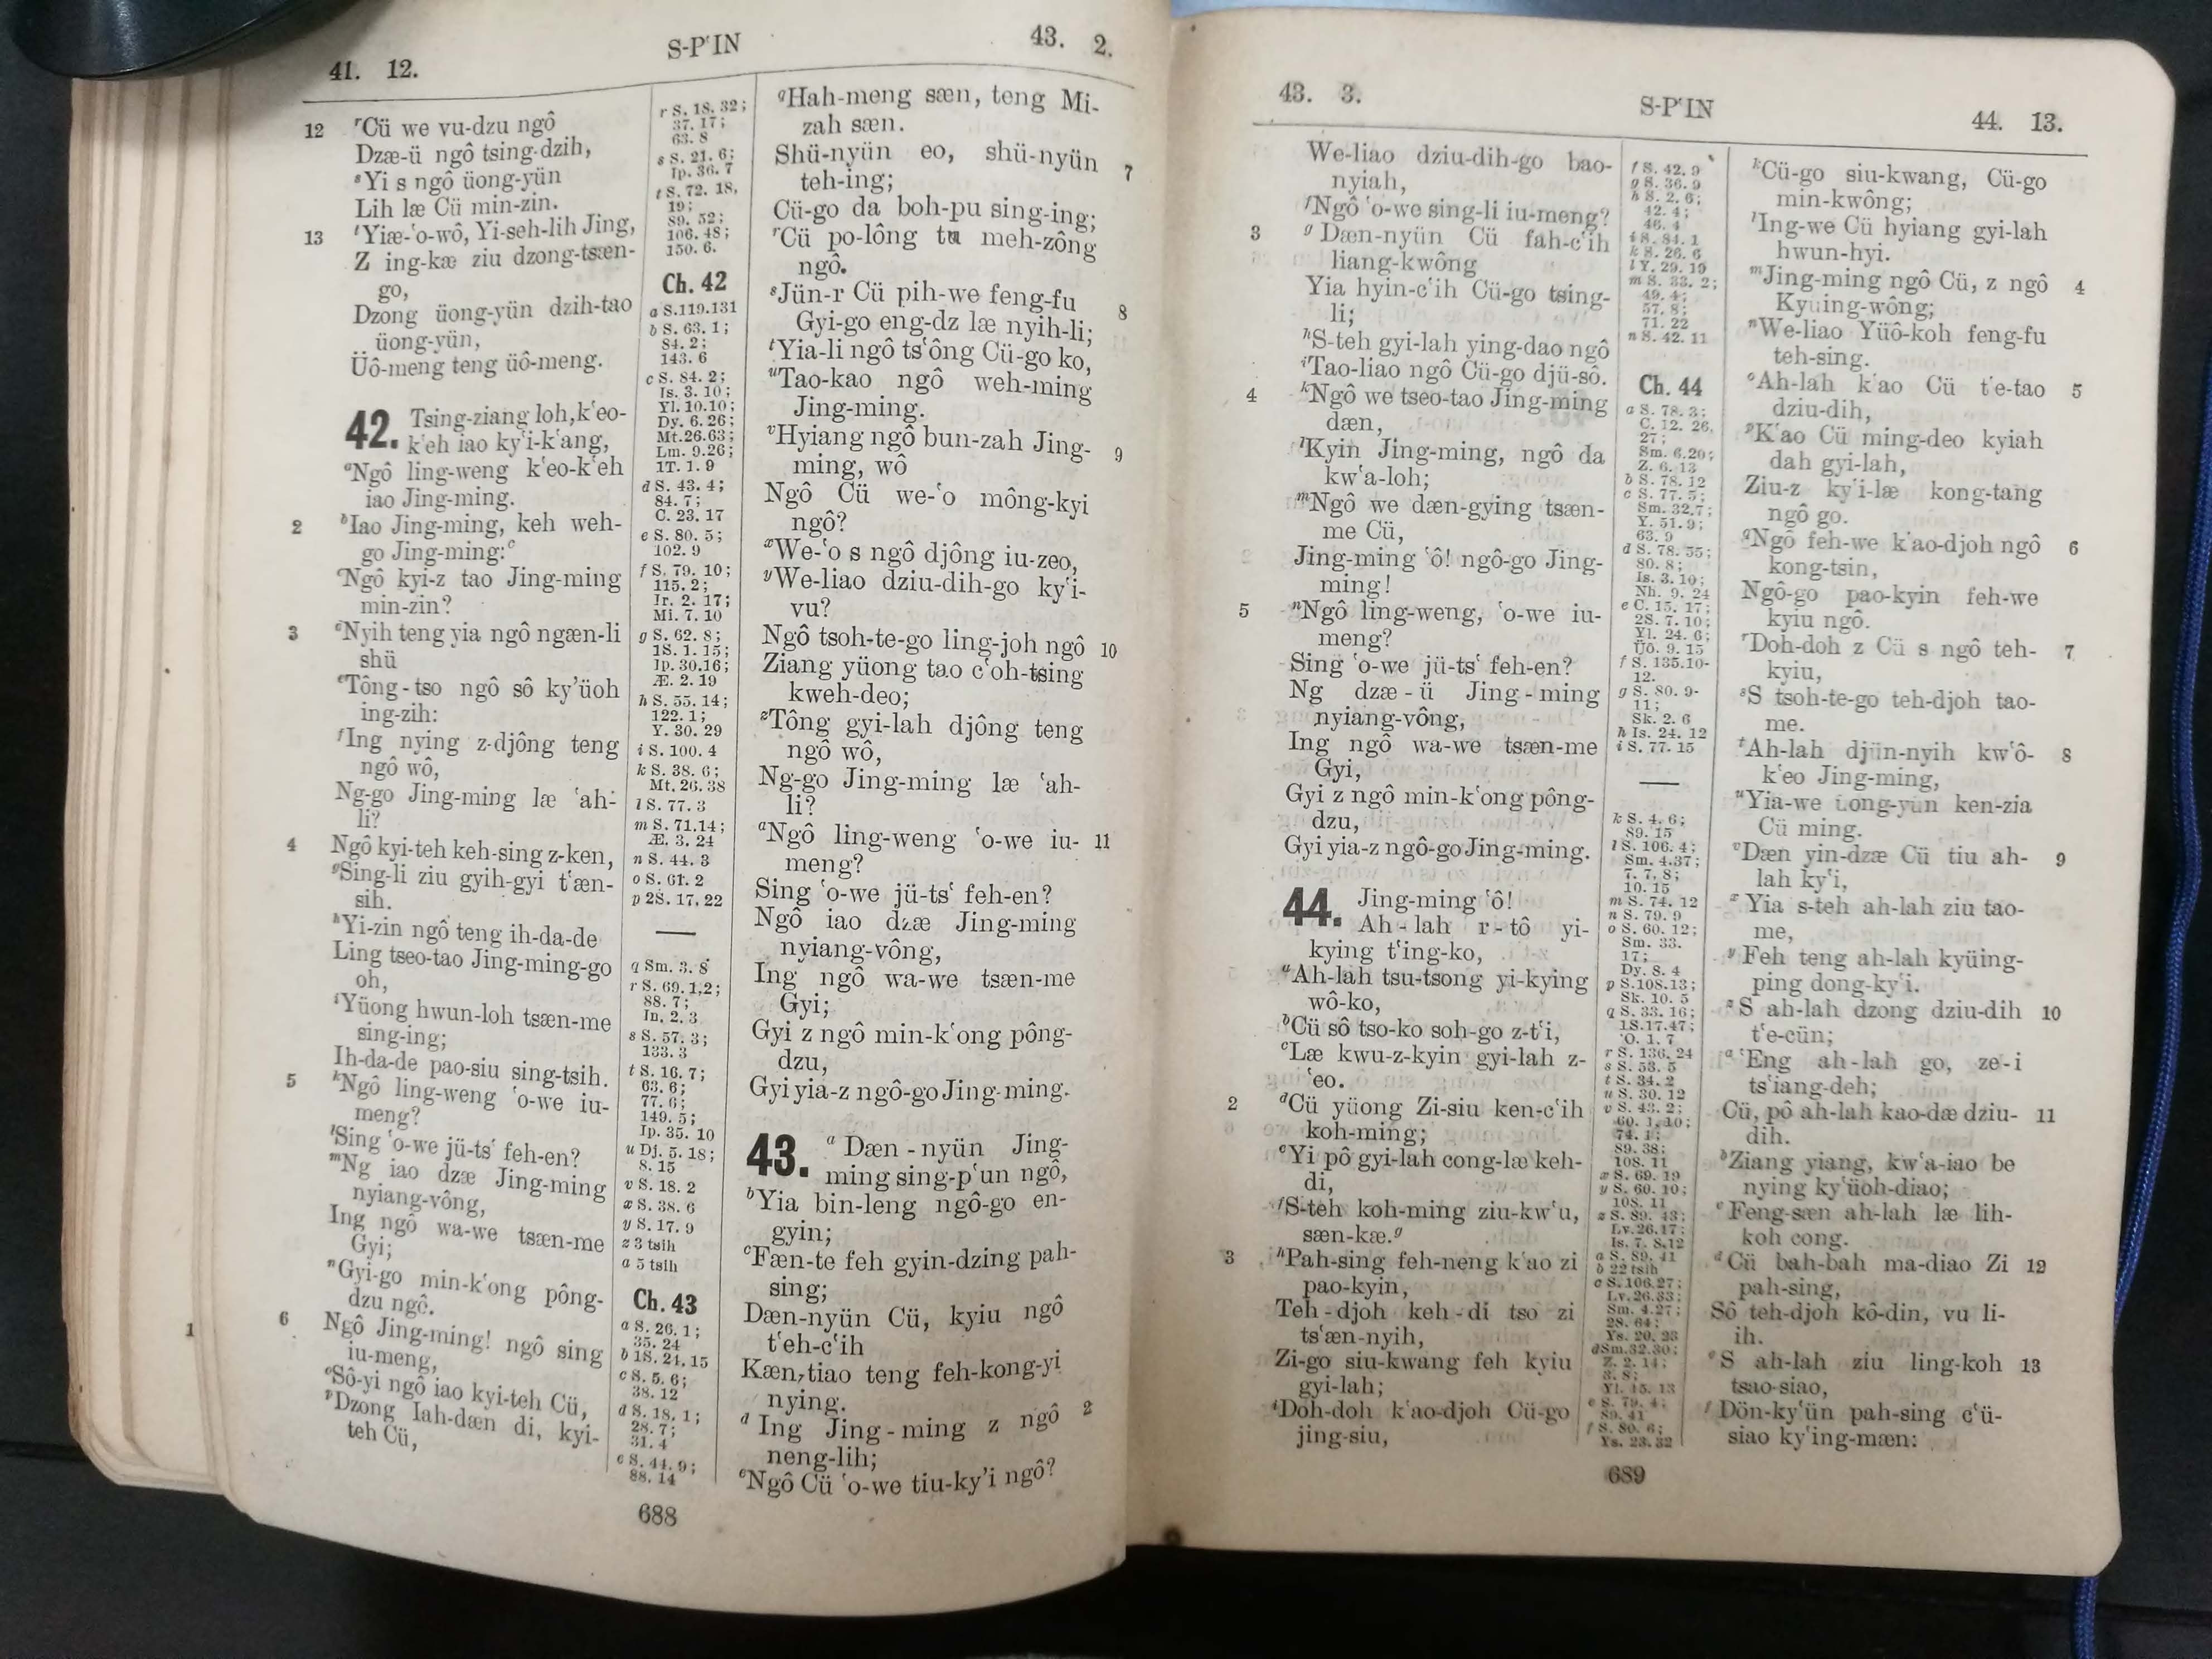 41. 12.
S-PʽIN
43. 2.
12 ʳCü we vu-dzu ngô
Dzæ-ü ngô tsing-dzih,
ˢYi s ngô üong-yün
Lih læ Cü min-zin.
13 ᵗYiæ-ʽo-wô, Yi-seh-lih Jing,
Z ing-kæ ziu dzong-tsæn-
go,
Dzong üong-yün dzih-tao
üong-yün,
Üô-meng teng üô-meng.
42. Tsing-ziang loh, kʽeo-
kʽeh iao kyʽi-kʽang,
ᵃNgô ling-weng kʽeo-kʽeh
iao Jing-ming.
2 ᵇIao Jing-ming, keh weh-
go Jing-ming:ᶜ
ᶜNgô kyi-z tao Jing-ming
min-zin?
3 ᵉNyih teng yia ngô ngæn-li
shü
ᵉTông-tso ngô sô kyʼüoh
ing-zih:
ᶠIng nying z-djông teng
ngô wô,
Ng-go Jing-ming læ ʽah-
li?
4 Ngô kyi-teh keh-sing z-ken,
ᵍSing-li ziu gyih-gyi tʽæn-
sih.
ʰYi-zin ngô teng ih-da-de
Ling tseo-tao Jing-ming-go
oh,
ⁱYüong hwun-loh tsæn-me
sing-ing;
Ih-da-de pao-siu sing-tsih.
5 ᵏNgô ling-weng ʽo-we iu-
meng?
ˡSing ʽo-we jü-tsʽ feh-en?
ᵐNg iao dzæ Jing-ming
nyiang-vông,
Ing ngô wa-we tsæn-me
Gyi;
ⁿGyi-go min-kʽong pông-
dzu ngô.
6 Ngô Jing-ming! ngô sing
iu-meng,
ᵒSô-yi ngô iao kyi-teh Cü,
ᵖDzong Iah-dæn di, kyi-
teh Cü,
r S. 18. 32;
37. 17;
63. 8
s S. 21. 6;
Ip. 36. 7
t S. 72. 18,
19;
89. 52;
106. 48;
150. 6.
Ch. 42
a S.119.131
b S. 63. 1;
84. 2;
143. 6
c S. 84. 2;
Is. 3. 10;
Yl. 10.10;
Dy. 6.26;
Mt.26.63;
Lm. 9.26;
1T. 1. 9
d S. 43. 4;
84. 7;
C. 23. 17
e S. 80. 5;
102. 9
f S. 79. 10;
115. 2;
Ir. 2. 17;
Mi. 7. 10
g S. 62. 8;
1S. 1. 15;
Ip. 30.16;
Æ. 2. 19
h S. 55. 14;
122. 1;
Y. 30. 29
i S. 100. 4
k S. 38. 6;
Mt. 26. 38
l S. 77. 3
m S. 71.14;
Æ. 3. 24
n S. 44. 3
o S. 61. 2
p 2S. 17. 22
q Sm. 3. 8
r S. 69. 1,2;
88. 7;
In. 2. 3
s S. 57. 3;
133. 3
t S. 16. 7;
63. 6;
77. 6;
149. 5;
Ip. 35. 10
u Dj. 5. 18;
8. 15
v S. 18. 2
x S. 38. 6
y S. 17. 9
z 3 tsih
a 5 tsih
Ch. 43
a S. 26. 1;
35. 24
b 1S. 24. 15
c S. 5. 6;
38. 12
d S. 18. 1;
28. 7;
31. 4
e S. 44. 9;
88. 14
ᵠHah-meng sæn, teng Mi-
zah sæn.
Shü-nyün eo, shü-nyün 7
teh-ing;
Cü-go da boh-pu sing-ing;
ʳCü po-lông tu meh-zông
ngô.
ˢJün-r Cü pih-we feng-fu 8
Gyi-go eng-dz læ nyih-li;
ᵗYia-li ngô tsʽông Cü-go ko,
ᵘTao-kao ngô weh-ming
Jing-ming.
ᵛHyiang ngô bun-zah Jing- 9
ming, wô
Ngô Cü we-ʽo mông-kyi
ngô?
ˣWe-ʽo s ngô djông iu-zeo,
ʸWe-liao dziu-dih-go kyʽi-
vu?
Ngô tsoh-te-go ling-joh ngô 10
Ziang yüong tao cʽoh-tsing
kweh-deo;
ᶻTông gyi-lah djông teng
ngô wô,
Ng-go Jing-ming læ ʽah-
li?
ᵃNgô ling-weng ʽo-we iu- 11
meng?
Sing ʽo-we jü-tsʽ feh-en?
Ngô iao dzæ Jing-ming
nyiang-vông,
Ing ngô wa-we tsæn-me
Gyi;
Gyi z ngô min-kʽong pông-
dzu,
Gyi yia-z ngô-go Jing-ming.
43. ᵃDæn-nyün Jing-
ming sing-pʽun ngô,
ᵇYia bin-leng ngô-go en-
gyin;
ᶜFæn-te feh gyin-dzing pah-
sing;
Dæn-nyün Cü, kyiu ngô
tʽeh-cʽih
Kæn-tiao teng feh-kong-yi
nying.
ᵈIng Jing-ming z ngô 2
neng-lih;
ᵉNgô Cü ʽo-we tiu-kyʼi ngô?
688
43. 3.
S-PʽIN
44. 13.
We-liao dziu-dih-go bao-
nyiah,
ᶠNgô ʽo-we sing-li iu-meng?
3 ᵍDæn-nyün Cü fah-cʽih
liang-kwông
Yia hyin-cʽih Cü-go tsing-
li;
ʰS-teh gyi-lah ying-dao ngô
ⁱTao-liao ngô Cü-go djü-sô.
4 ᵏNgô we tseo-tao Jing-ming
dæn,
ˡKyin Jing-ming, ngô da
kwʽa-loh;
ᵐNgô we dæn-gying tsæn-
me Cü,
Jing-ming ʽô! ngô-go Jing-
ming!
5 ⁿNgô ling-weng, ʽo-we iu-
meng?
Sing ʽo-we jü-tsʽ feh-en?
Ng dzæ-ü Jing-ming
nyiang-vông,
Ing ngô wa-we tsæn-me
Gyi,
Gyi z ngô min-kʽong pông-
dzu,
Gyi yia-z ngô-go Jing-ming.
44. Jing-ming ʽô!
Ah-lah r-tô yi-
kying tʽing-ko,
ᵃAh-lah tsu-tsong yi-kying
wô-ko,
ᵇCü sô tso-ko soh-go z-tʽi,
ᶜLæ kwu-z-kyin gyi-lah z-
ʽeo.
2 ᵈCü yüong Zi-siu ken-cʽih
koh-ming;
ᵉYi pô gyi-lah cong-læ keh-
di,
ᶠS-teh koh-ming ziu-kwʽu,
sæn-kæ.ᵍ
3 ʰPah-sing feh-neng kʽao zi
pao-kyin,
Teh-djoh keh-di tso zi
tsʽæn-nyih,
Zi-go siu-kwang feh kyiu
gyi-lah;
ⁱDoh-doh kʽao-djoh Cü-go
jing-siu,
f S. 42. 9
g S. 36. 9
h S. 2. 6;
42. 4;
46. 4
i S. 84. 1
k S. 26. 6
l Y. 29. 19
m S. 33. 2;
49. 4;
57. 8;
71. 22
n S. 42. 11
Ch. 44
a S. 78. 3;
C. 12. 26,
27;
Sm. 6.20;
Z. 6. 13
b S. 78. 12
c S. 77. 5;
Sm. 32.7;
Y. 51. 9;
63. 9
d S. 78. 55;
80. 8;
Is. 3. 10;
Nh. 9. 24
e C. 15. 17;
2S. 7. 10;
Yl. 24. 6;
Üô. 9. 15
f S. 135.10-
12.
g S. 80. 9-
11;
Sk. 2. 6
h Is. 24. 12
i S. 77. 15
k S. 4. 6;
89. 15
l S. 106. 4;
Sm. 4.37;
7. 7, 8;
10. 15
m S. 74. 12
n S. 79. 9
o S. 60. 12;
Sm. 33.
17;
Dy. 8. 4
p S.108.13;
Sk. 10. 5
q S. 33. 16;
1S.17.47;
ʽO. 1. 7
r S. 136. 24
s S. 53. 5
t S. 34. 2
u S. 30. 12
v S. 43. 2;
60. 1, 10;
74. 1;
89. 38;
108. 11
x S. 69. 19
y S. 60. 10;
108. 11
z S. 89. 43;
Lv.26.17;
Is. 7. 8,12
a S. 89. 41
b 22 tsih
c S. 106.27;
Lv.26.33;
Sm. 4.27;
28. 64;
Ys. 20. 23
d Sm.32.30;
Z. 2. 14;
3. 8;
Yl. 15. 13
e S. 79. 4;
89. 41
f S. 80. 6;
Ys. 23. 32
ᵏCü-go siu-kwang, Cü-go
min-kwông;
ˡIng-we Cü hyiang gyi-lah
hwun-hyi.
ᵐJing-ming ngô Cü, z ngô 4
Kyuing-wông;
ⁿWe-liao Yüô-koh feng-fu
teh-sing.
ᵒAh-lah kʽao Cü tʽe-tao 5
dziu-dih,
ᵖKʽao Cü ming-deo kyiah
dah gyi-lah,
Ziu-z kyʽi-læ kong-tang
ngô go.
ᵠNgô feh-we kʽao-djoh ngô 6
kong-tsin,
Ngô-go pao-kyin feh-we
kyiu ngô.
ʳDoh-doh z Cü s ngô teh- 7
kyiu,
ˢS tsoh-te-go teh-djoh tao-
me.
ᵗAh-lah djün-nyih kwʽô- 8
kʽeo Jing-ming,
ᵘYia-we üong-yün ken-zia
Cü ming.
ᵛDæn yin-dzæ Cü tiu ah- 9
lah kyʽi,
ˣYia s-teh ah-lah ziu tao-
me,
ʸFeh teng ah-lah kyüing-
ping dong-kyʽi.
ᶻS ah-lah dzong dziu-dih 10
tʽe-cün;
ᵃʽEng ah-lah go, ze-i
tsʽiang-deh;
Cü, pô ah-lah kao-dæ dziu- 11
dih.
ᵇZiang yiang, kwʽa-iao be
nying kyʽüoh-diao;
ᶜFeng-sæn ah-lah læ lih-
koh cong.
ᵈCü bah-bah ma-diao Zi 12
pah-sing,
Sô teh-djoh kô-din, vu li-
ih.
ᵉS ah-lah ziu ling-koh 13
tsao-siao,
ᶠDön-kyʽün pah-sing cʽü-
siao kyʽing-mæn:
689
1